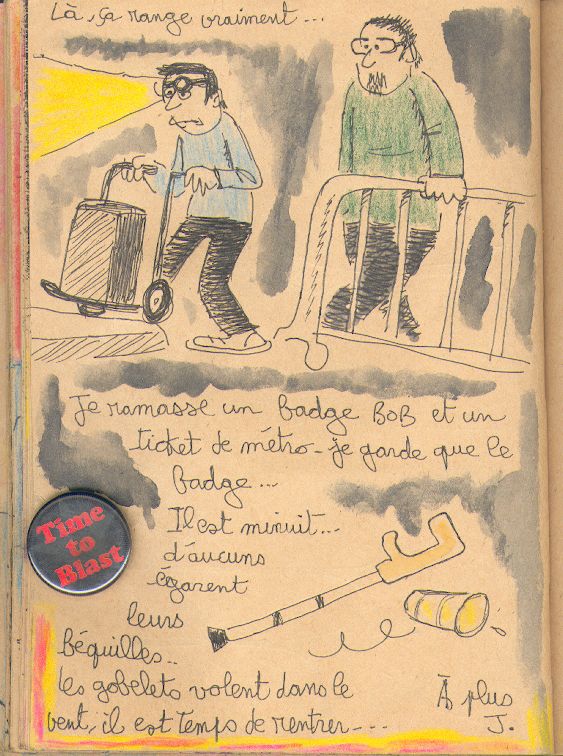 Là, ça range vraiment...
Je ramasse un badge BOB et un
ticket de métro - je garde que le
badge...
Il est minuit...
d'aucuns
égarent
leurs
béquilles..
Les gobelets volent dans le
vent, il est temps de rentrer...
À plus
J.
Time
to
Blast